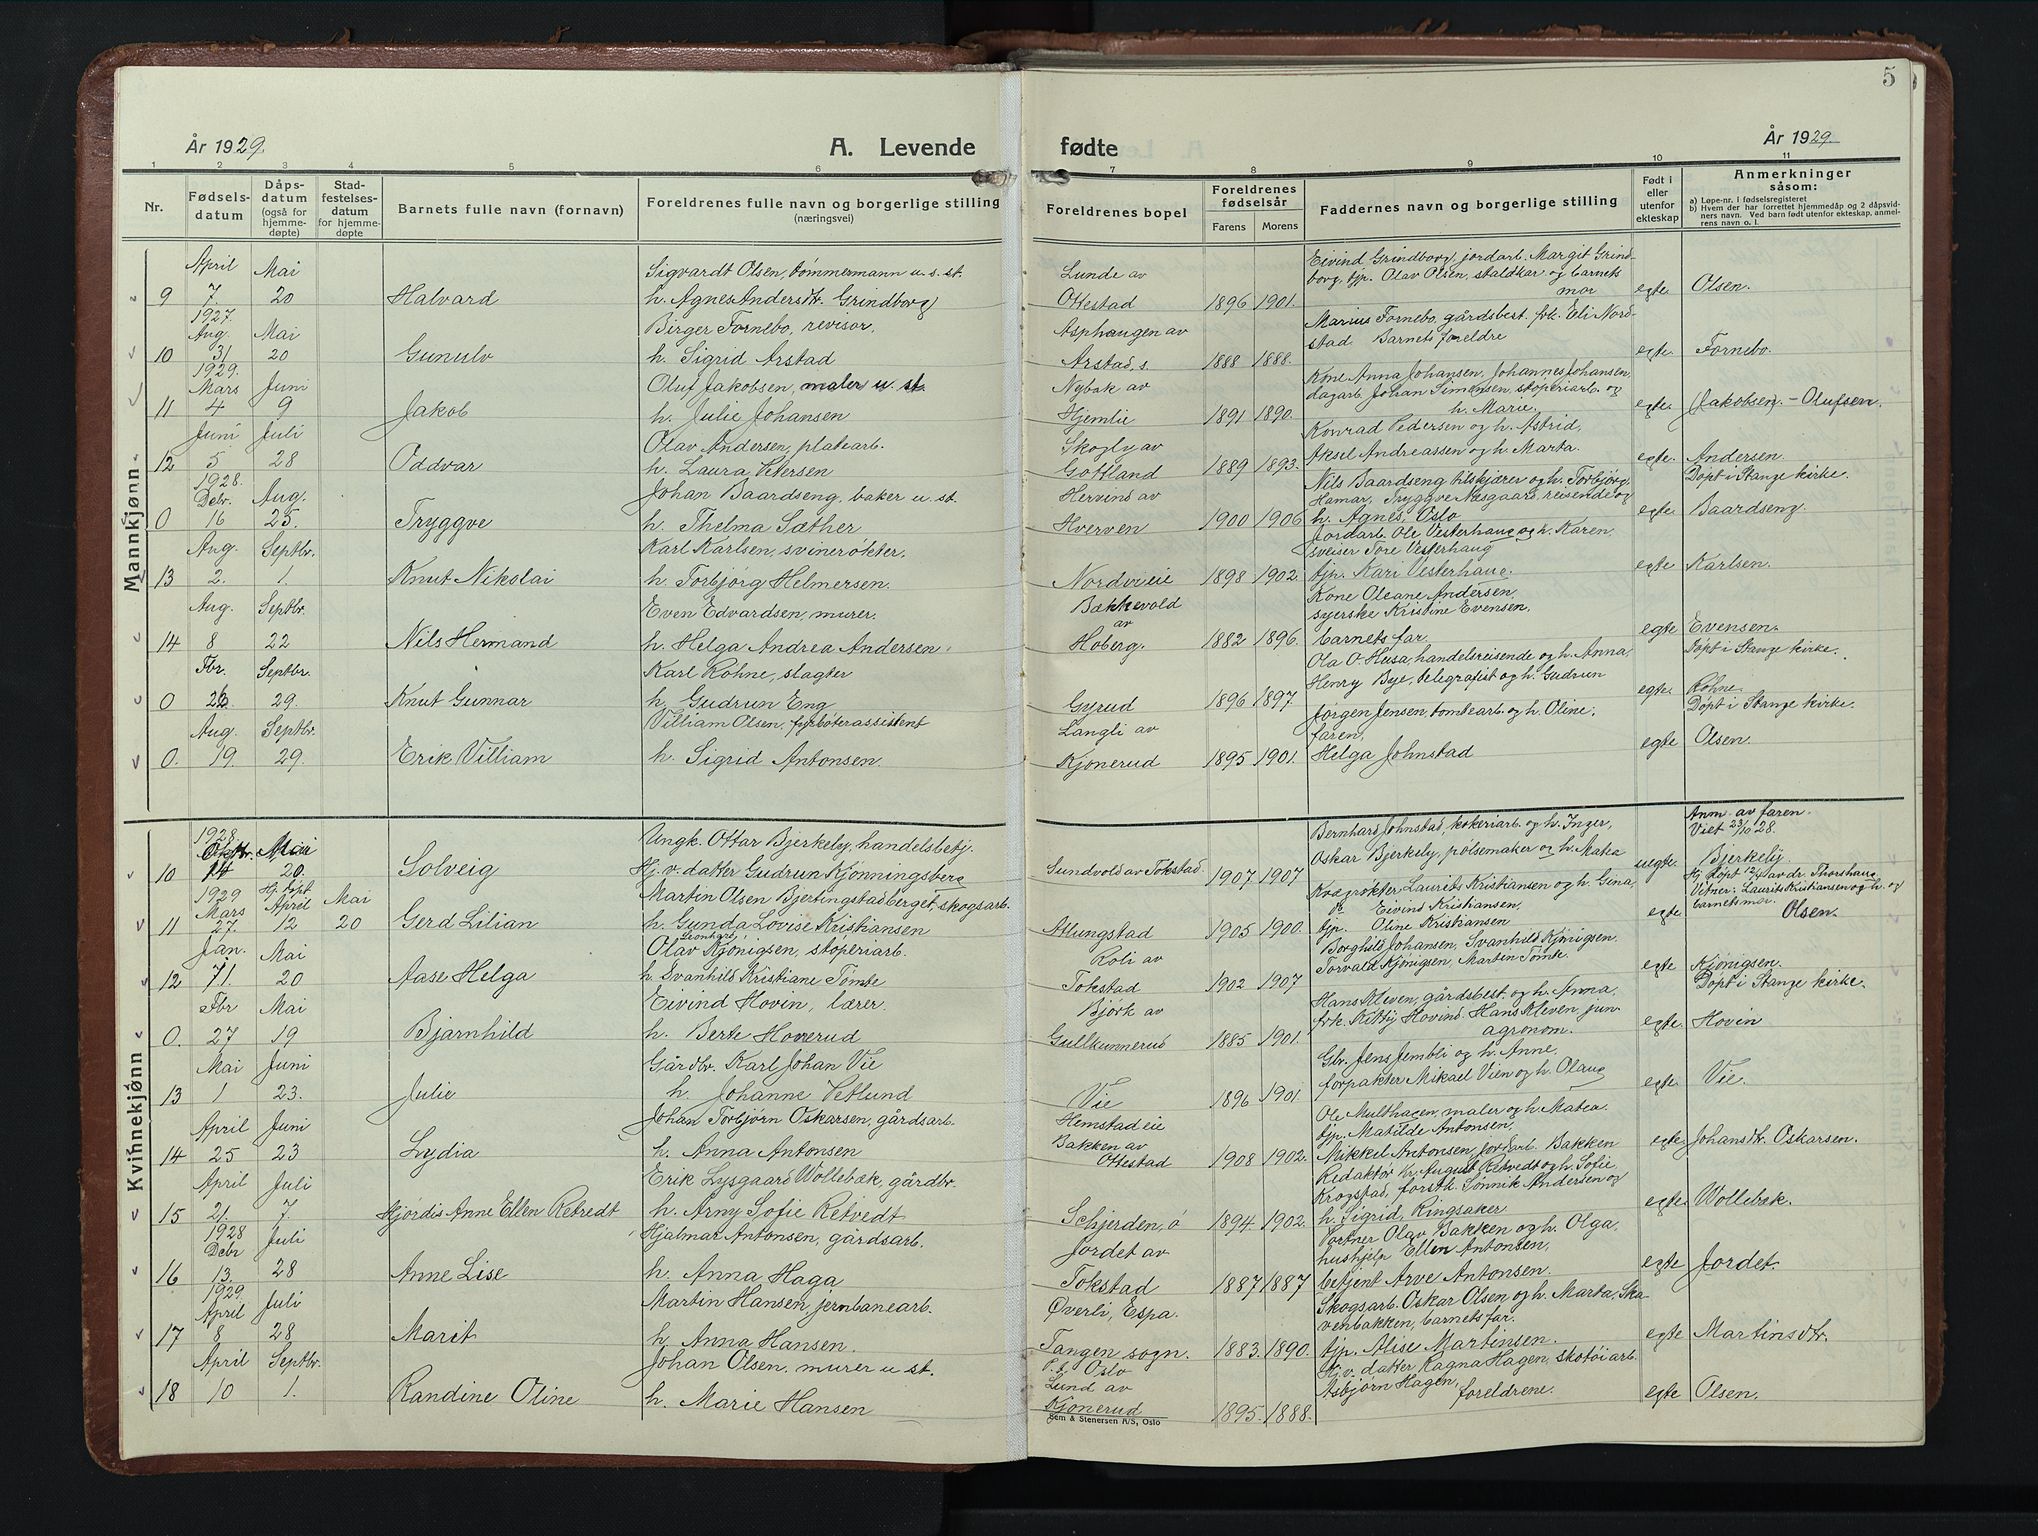 5
År 1929.
A. Levende
fødte
År 1929.
1 2 3 4 5 6 7 8 9 10 11
Nr.
Fødsels-
datum
Dåps-
datum
(også for
hjemme-
døpte)
Stad-
festelses-
datum
for hjemme-
døpte
Barnets fulle navn (fornavn)
Foreldrenes fulle navn og borgerlige stilling
(næringsvei)
Foreldrenes bopel
Foreldrenes
fødselsår
Farens Morens
Faddernes navn og borgerlige stilling
Født i
eller
utenfor
ekteskap
Anmerkninger
såsom:
a) Løpe-nr. i fødselsregisteret
b) Hvem der har forrettet hjemmedåp og 2 dåpsvid-
ners navn. Ved barn født utenfor ekteskap, anmel-
derens navn o. l.
Mannkjønn
April Mai Sigvardt Olsen, tømmermann u. s. st. Lunde av Eivind Grindborg, jordarb. Margit Grind-
borg, tjp. Olav Olsen, staldkar og barnets
9 7 20 Halvard h. Agnes Andersdtr. Grindborg Ottestad 1896 1901. mor egte Olsen.
1927.
Aug. Mai Birger Fornebo, revisor, Asphaugen av Marius Fornebo, gårdsbest. frk. Eli Nord-
10 31 20 Gunulv h. Sigrid Arstad Arstad, s. 1888 1888. stad Barnets foreldre egte Fornebo.
1929.
Mars Juni Oluf Jakobsen, maler u. st. Nybak av Kone Anna Johansen, Johannes Johansen,
dagarb. Johan Simensen, støperiarb. og
11 4 9 Jakob h. Julie Johansen Hjemlie 1891 1890. h. Marie. egte Jakobsen. - Olufsen.
Juni Juli Olav Andersen, platearb. Skogly av Konrad Pedersen og h. Astrid,
12 5 28 Oddvar h. Laura Petersen Gottland 1889 1893. Aksel Andreassen og h. Marta. egte Andersen
1928.
Debr. Aug. Johan Baardseng, baker u. st. Hervind av Nils Baardseng tilskjærer og h. Torbjørg, Døpt i Stange kirke.
Hamar, Tryggve Næsgaard, reisende og
0 16 25. Tryggve h. Thelma Sæther Hverven 1900 1906 h. Agnes, Oslo egte Baardseng.
Aug. Septbr. Karl Karlsen, svinerøkter, Jordarb. Ole Vesterhaug og h. Karen
sveiser Tore Vesterhaug
13 2. 1. Knut Nikolai h. Torbjørg Helmersen. Nordvieie 1898 1902. tjp. Kari Vesterhaug. egte Karlsen.
Aug. Septbr. Even Edvardsen, murer. Bækkevold Kone Oleane Andersen,
av syerske Kristine Evensen,
14 8 22 Nils Hermand h. Helga Andrea Andersen. Hoberg. 1882 1896. barnets far. egte Evensen.
Fbr. Septbr. Karl Rohne, slagter Ola O. Husa, handelsreisende og h. Anna, Døpt i Stange kirke.
0 26 29. Knut Gunnar h. Gudrun Eng Gyrud 1896 1897. Henry Bye, telegrafist og h. Gudrun egte Rohne.
Aug. Septbr. Villiam Olsen, fyrbøterassistent Langli av Jørgen Jensen, tomtearb. og h. Oline, Døpt i Stange kirke.
faren,
0. 19. 29. Erik Villiam h. Sigrid Antonsen. Kjonerud 1895 1901. Helga Johnstad egte Olsen.
Kvinnekjønn
1928 Anm. av faren.
Oktbr. Mai Ungk. Ottar Bjerkely, handelsbetj. Bernhard Johnstad, kokeriarb. og h. Inger, Viet 23/10 28.
10 14 20. Solveig Hj. v. datter Gudrun Kjønningsberg Sundvold av Tokstad. 1907 1907 Oskar Bjerkely, pølsemaker og h. Matea uegte. Bjerkely.
1929 Hj. døpt Mai Martin Olsen Bjertingstadberget, skogsarb. Kvægrøkter Laurits Kristiansen og h. Gina, Hj. døpt 12/4 av dr. Thorshaug
Mars April Eivind Kristiansen, Vitner: Laurits Kristiansen og h. og
barnets mor.
11 27. 12 20 Gerd Lilian h. Gunda Lovise Kristiansen Atlungstad 1905 1900. tjp. Oline Kristiansen egte Olsen.
Jan. Mai Olav Leonhard Kjønigsen, støperiarb. Roli av Borghild Johansen, Svanhild Kjønigsen
12 71. 20 Aase Helga h. Svanhild Kristiane Tomte Tokstad 1902 1907 Torvald Kjønigsen, Martin Tomte. egte Kjønigsen.
Fbr Mai Eivind Hovin, lærer. Bjørk av Hans Kleven, gårdsbest. og h. Anna, Døpt i Stange kirke.
frk. Kitty Hovind. Hans Kleven jun.
0. 27 19 Bjarnhild h. Berte Hoverud Gullkunnerud 1885 1901. agronom. egte Hovin
Mai Juni Gårdbr. Karl Johan Vie Gbr. Jens Jembli og h. Anne,
13 1 23. Julie h. Johanne Vetlund Vie 1896 1901. forpakter Mikael Vien og h. Olaug egte Vie.
April Juni Johan Torbjørn Oskarsen, gårdsarb. Hemstad eie Ole Multhagen, maler og h. Matea.
Bakken av tjp. Matilde Antonsen,
14 25 23 Lydia h. Anna Antonsen Ottestad 1908 1902. Mikkel Antonsen, jordarb. Bakken egte Johansdtr. Oskarsen.
April Juli Erik Lysgaard Wollebæk, gårdbr. Redaktør Kr. August Retvedt og h. Sofie,
Krogstad, forsth. Sønnik Andersen og
15 21. 7. Hjørdis Anne Ellen Retvedt h. Arny Sofie Retvedt Schjerden, ø 1894 1902. h. Sigrid, Ringsaker egte Wollebæk.
1928
Debr Juli Hjalmar Antonsen, gårdsarb. Jordet av Portner Olav Bakken og h. Olga,
hushjelp Ellen Antonsen,
16 13. 28 Anne Lise h. Anna Haga Tokstad 1887 1887 betjent Arve Antonsen. egte Jordet.
1929
April Juli Martin Hansen, jernbanearb. Øverli, Espa. Skogsarb. Oskar Olsen og h. Marta, Ska-
venbakken, barnets far.
17 8 28 Marit h. Anna Hansen. Tangen sogn. 1883. 1890. tjp. Alise Martinsen. egte Martinsdtr.
April Septbr. Johan Olsen. murer u. st. p. t. Oslo Hj. v. datter Ragna Hagen, skotøiarb.
Lund av Asbjørn Hagen,
18 10 1. Randine Oline h. Marie Hansen Kjonerud 1895. 1888. foreldrene. egte Olsen.
Sem & Stenersen A/S, Oslo